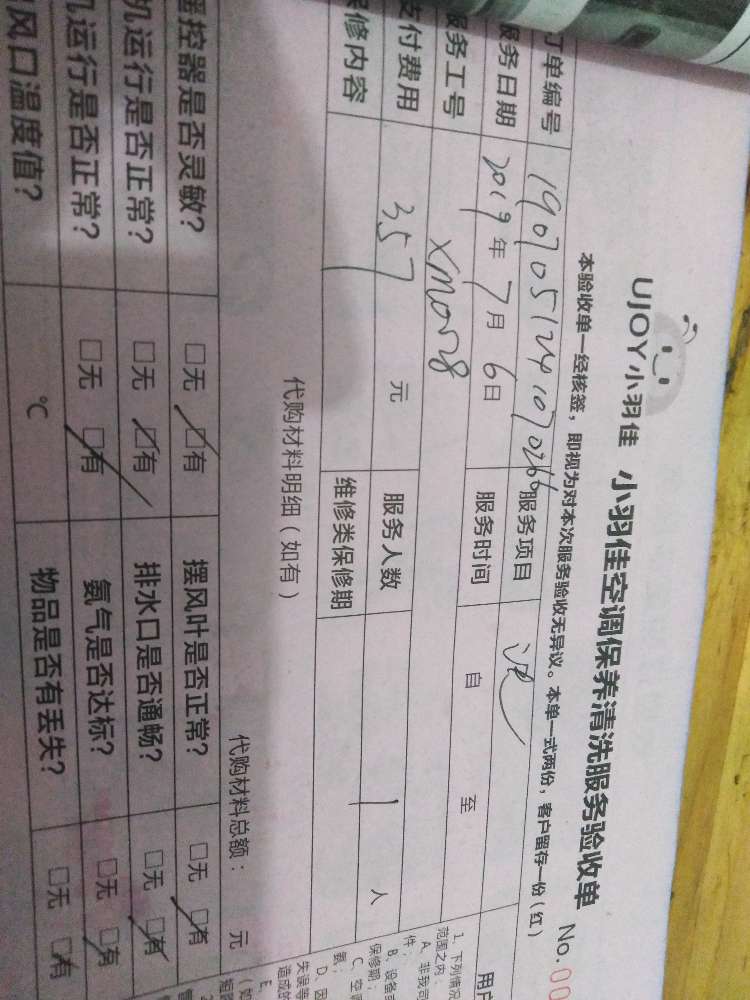 UJOY小羽佳 小羽佳空调保养清洗服务验收单 No.00
本验收单一经核签，即视为对本次服务验收无异议。本单一式两份，客户留存一份（红）
订单编号 190705124107026 服务项目
服务日期 2019年7月6日 服务时间 自 至
服务工号 xm028
支付费用 357 元 服务人数 1 人
保修内容 维修类保修期
代购材料明细（如有） 代购材料总额： 元
遥控器是否灵敏？ □无 □有 摆风叶是否正常？ □无 □有
机运行是否正常？ □无 □有 排水口是否通畅？ □无 □有
机运行是否正常？ □无 □有 氨气是否达标？ □无 □有
风口温度值？ ℃ 物品是否有丢失？ □无 □有
用户
1、下列情况
范围之内：
A、非我司
件；
B、设备
保修期；
C、空
氨；
D、因
失误等
造成的
E、